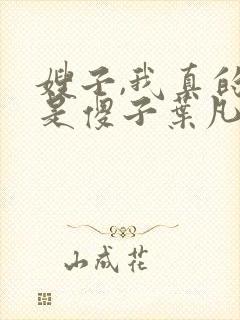 嫂子,我真的
是傻子葉凡
山成花